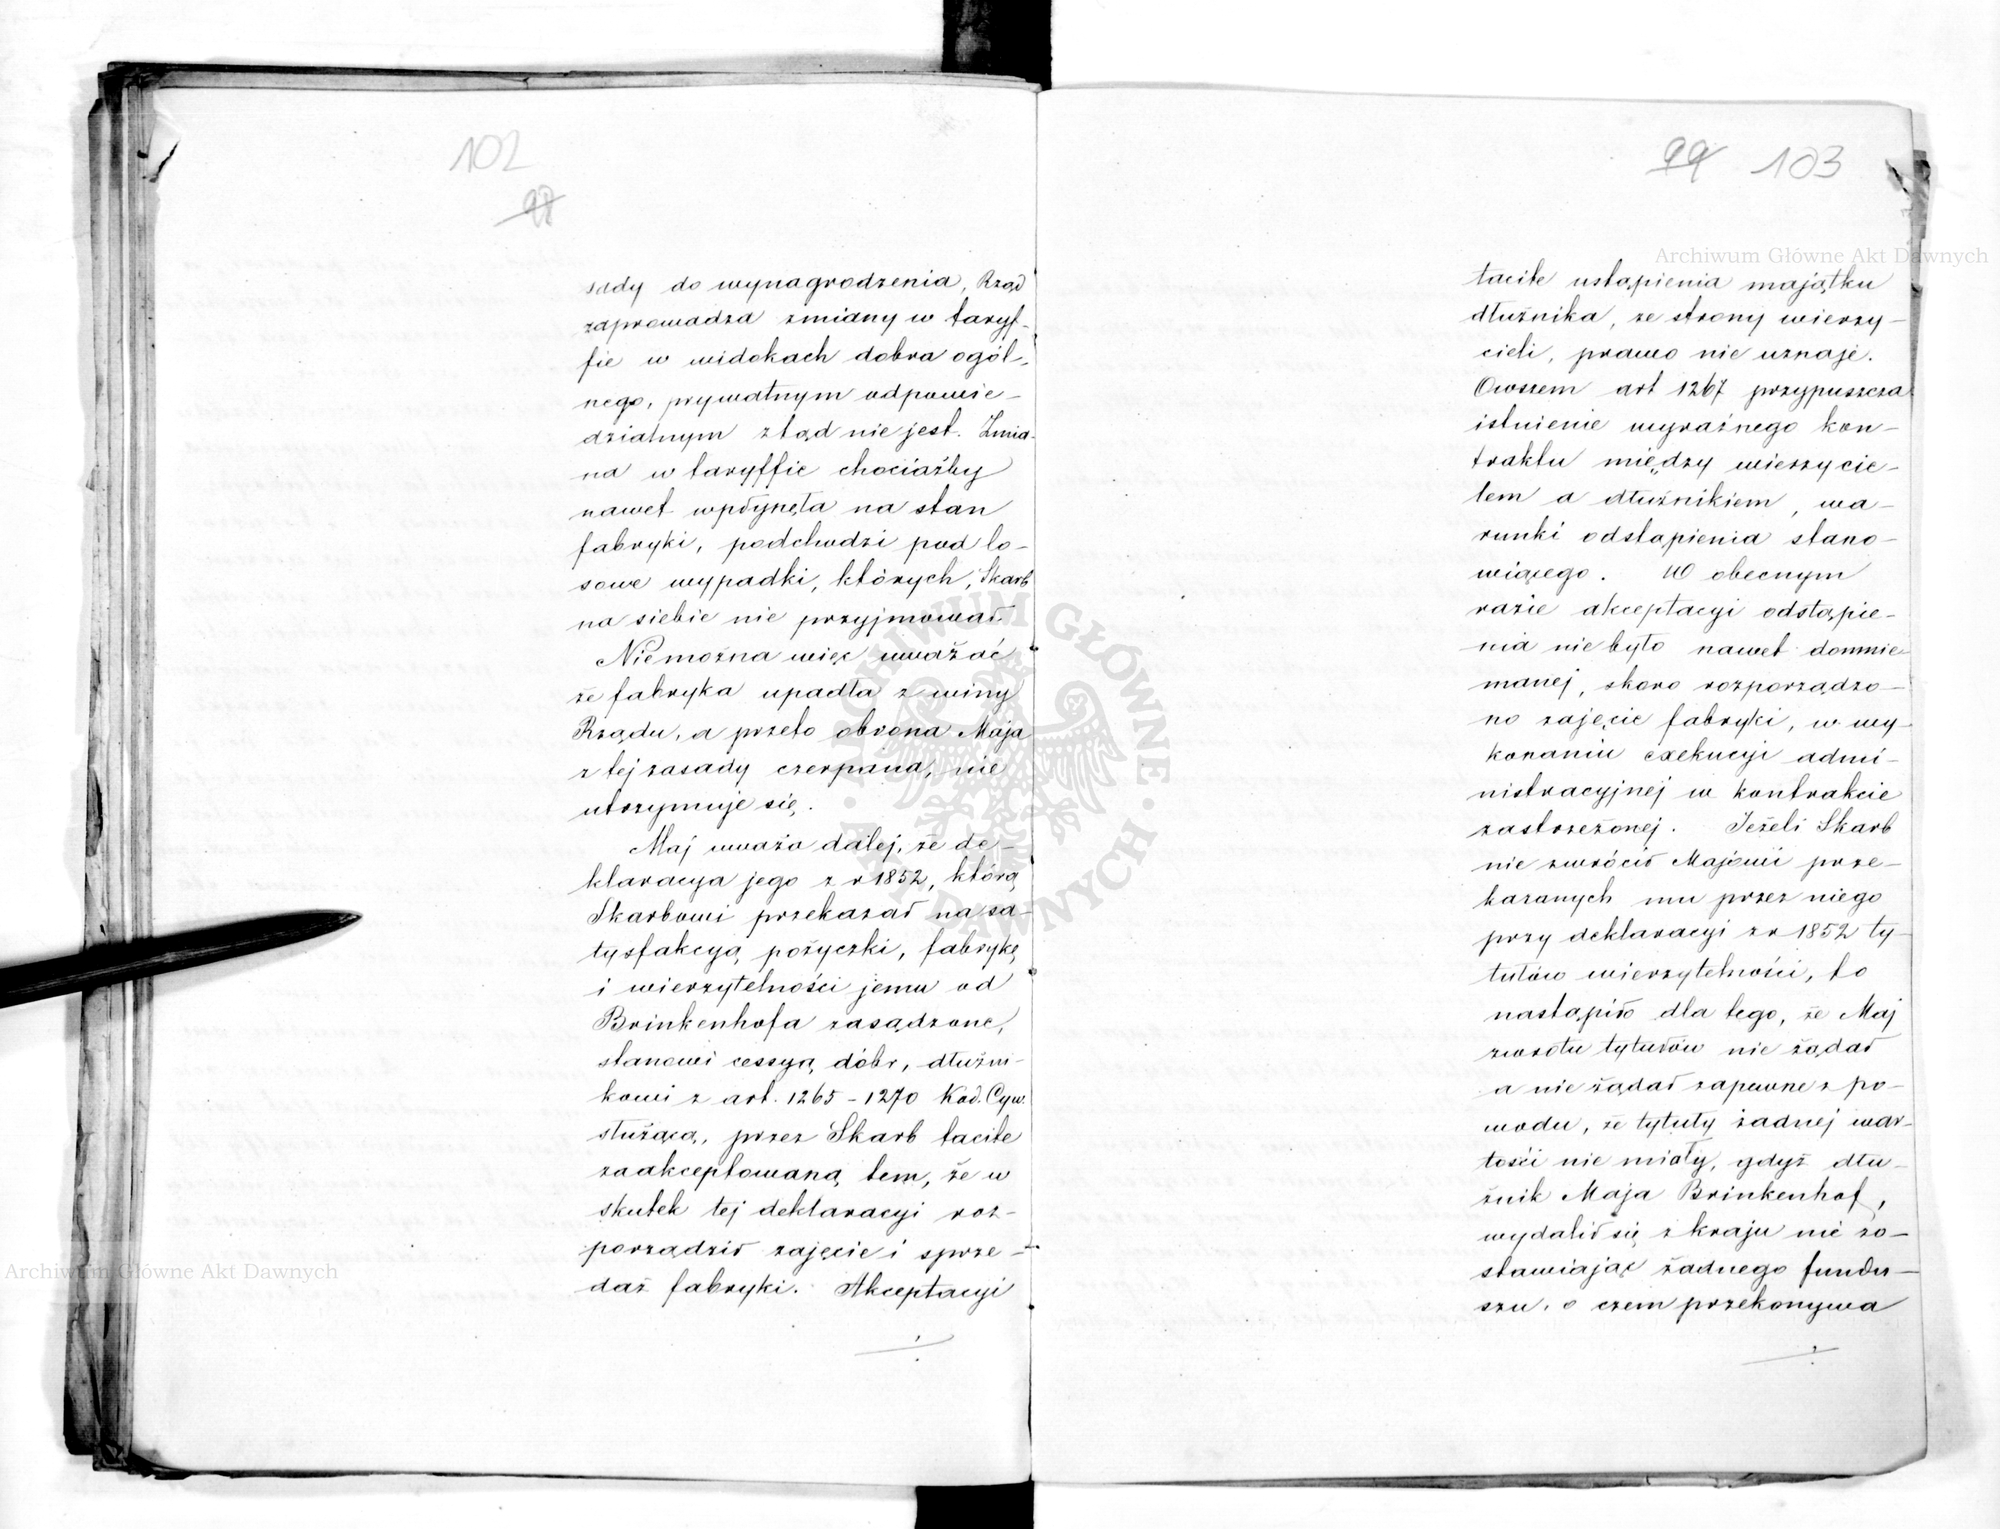 102
98
sady do wynagrodzenia, Rząd
zaprowadza zmiany w taryf-
fie w widokach dobra ogól-
nego, prywatnym odpowie-
dzialnym ztąd nie jest. Zmia-
na w taryffie chociażby
nawet wpłynęła na stan
fabryki, podchodzi pod lo-
sowe wypadki, których, Skarb
na siebie nie przyjmował.
Niemożna więc uważać
że fabryka upadła z winy
Rządu, a przeto obrona Maja
z tej zasady czerpana, nie
utrzymuje się.
Maj uważa dalej, że de-
klaracya jego z r 1852, którą
Skarbowi przekazał na sa-
tysfakcyą pożyczki, fabrykę
i wierzytelności jemu od
Brinkenhofa zasądzone,
stanowi cessyą dóbr, dłużni-
kowi z art. 1265 - 1270 Kod. Cyw.
służącą, przez Skarb tacite
zaakceptowaną tem, że w
skutek tej deklaracyi roz-
porządził zajęcie i sprze-
daż fabryki. Akceptacyi
99 103
tacite ustąpienia majątku
dłużnika, ze strony wierzy-
cieli, prawo nie uznaje.
Owszem art 1267 przypuszcza
istnienie wyraźnego kon-
traktu między wierzycie-
lem a dłużnikiem, wa-
runki odstąpienia stano-
wiącego. W obecnym
razie akceptacyi odstąpie-
nia nie było nawet domnie-
manej, skoro rozporządzo-
no zajęcie fabryki, w wy-
konaniu exekucyi admi-
nistracyjnej w kontrakcie
zastrzeżonej. Jeżeli Skarb
nie zwrócił Majowi prze-
kazanych mu przez niego
przy deklaracyi z r 1852 ty-
tułów wierzytelności, to
nastąpiło dla tego, że Maj
zwrotu tytułów nie żądał
a nie żądał zapewne z po-
wodu, że tytuły żadnej war-
tości nie miały, gdyż dłu-
żnik Maja Brinkenhof,
wydalił się z kraju nie zo-
stawiając żadnego fundu-
szu, o czem przekonywa
Archiwum Główne Akt Dawnych
Archiwum Główne Akt Dawnych
ARCHIWUM GŁÓWNE AKT DAWNYCH